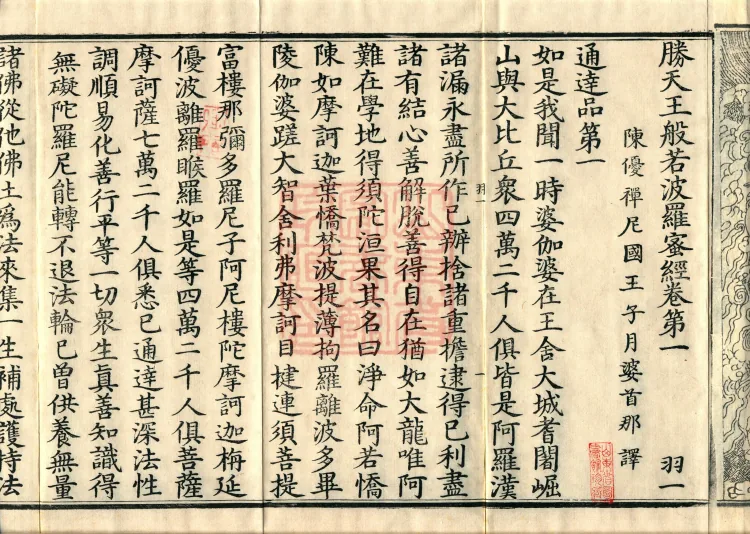 勝天王般若波羅蜜經卷第一　羽一
陳優禪尼國王子月婆首那譯
通達品第一
如是我聞一時婆伽婆在王舍大城耆闍崛
山與大比丘衆四萬二千人俱皆是阿羅漢
諸漏永盡所作已辦捨諸重擔逮得已利盡
羽一　一
諸有結心善解脫善得自在猶如大龍唯阿
難在學地得須陀洹果其名曰淨命阿若憍
陳如摩訶迦葉憍梵波提薄拘羅離波多畢
陵伽婆蹉大智舍利弗摩訶目揵連須菩提
富樓那彌多羅尼子阿尼樓陀摩訶迦栴延
優波離羅睺羅如是等四萬二千人俱菩薩
摩訶薩七萬二千人俱悉已通達甚深法性
調順易化善行平等一切衆生真善知識得
無礙陀羅尼能轉不退法輪已曾供養無量
諸佛從他佛土為法來集一生補處護持法